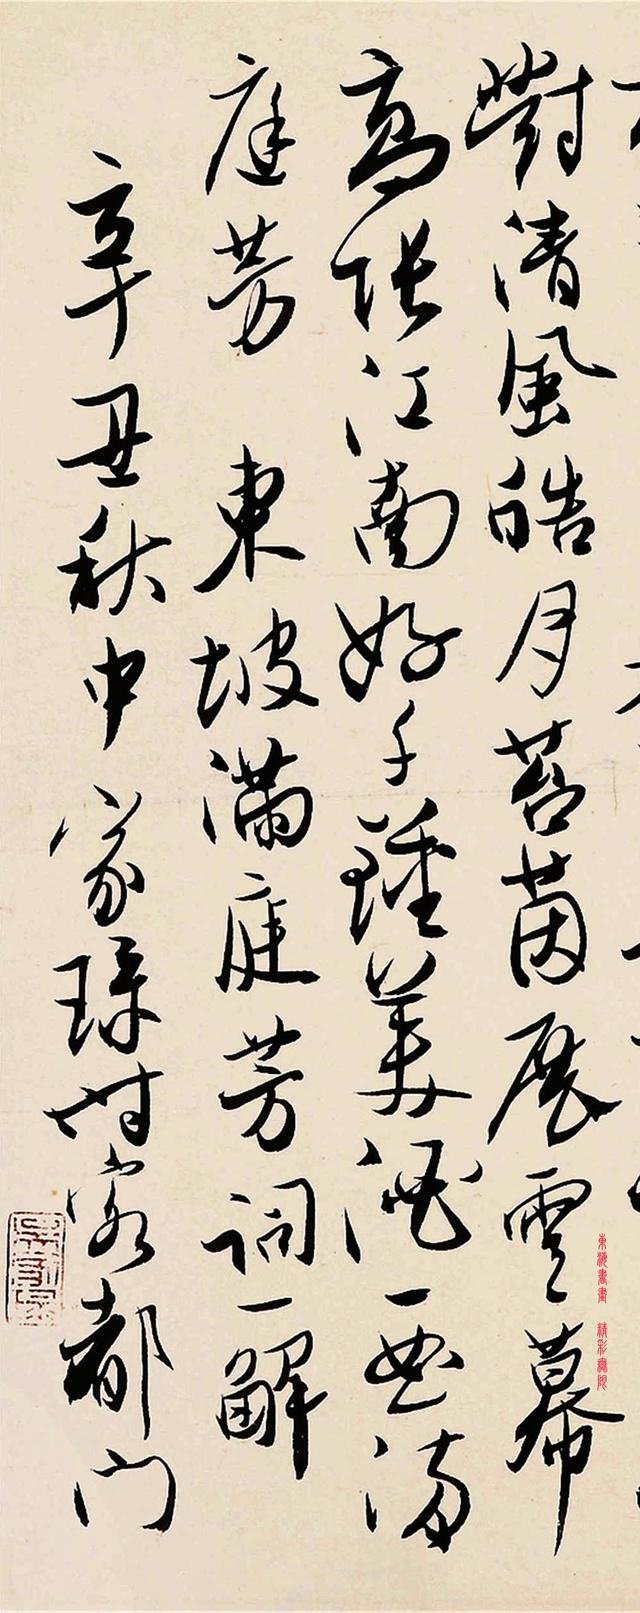 對清風皓月苔茵展雲幕
高張江南好千鍾美酒一曲滿
庭芳 東坡滿庭芳詞一解
辛丑秋中家琭時客都門
吳家琭
東海書畫 精彩無限